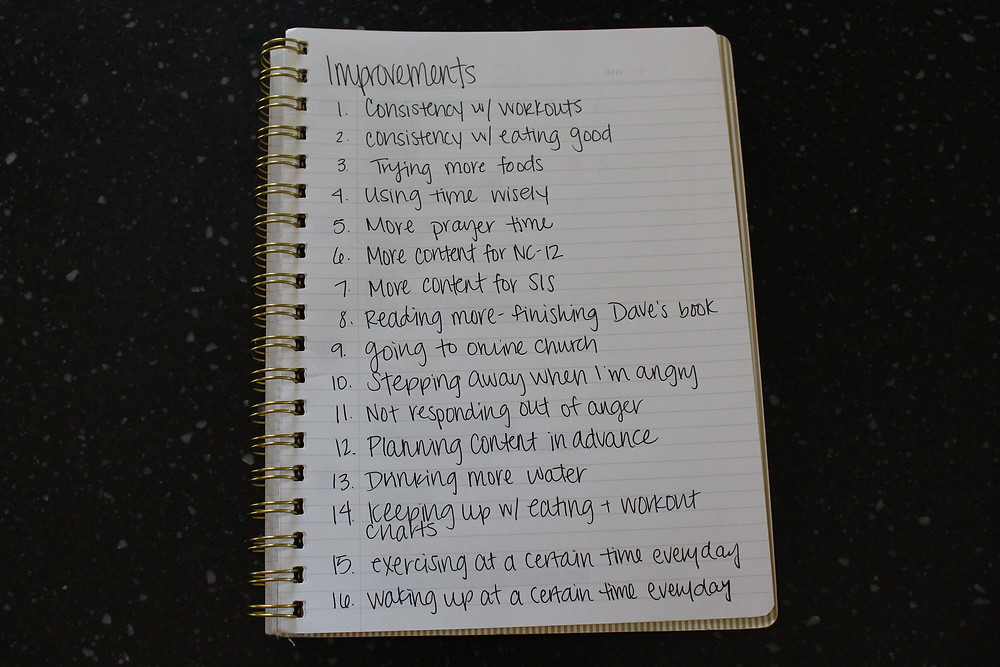 Improvements
1. Consistency w/ workouts
2. consistency w/ eating good
3. Trying more foods
4. Using time wisely
5. More prayer time
6. More content for NC-12
7. More content for SIS
8. Reading more - finishing Dave's book
9. going to online church
10. Stepping away when I'm angry
11. Not responding out of anger
12. Planning content in advance
13. Drinking more water
14. Keeping up w/ eating + workout
charts
15. exercising at a certain time everyday
16. waking up at a certain time everyday